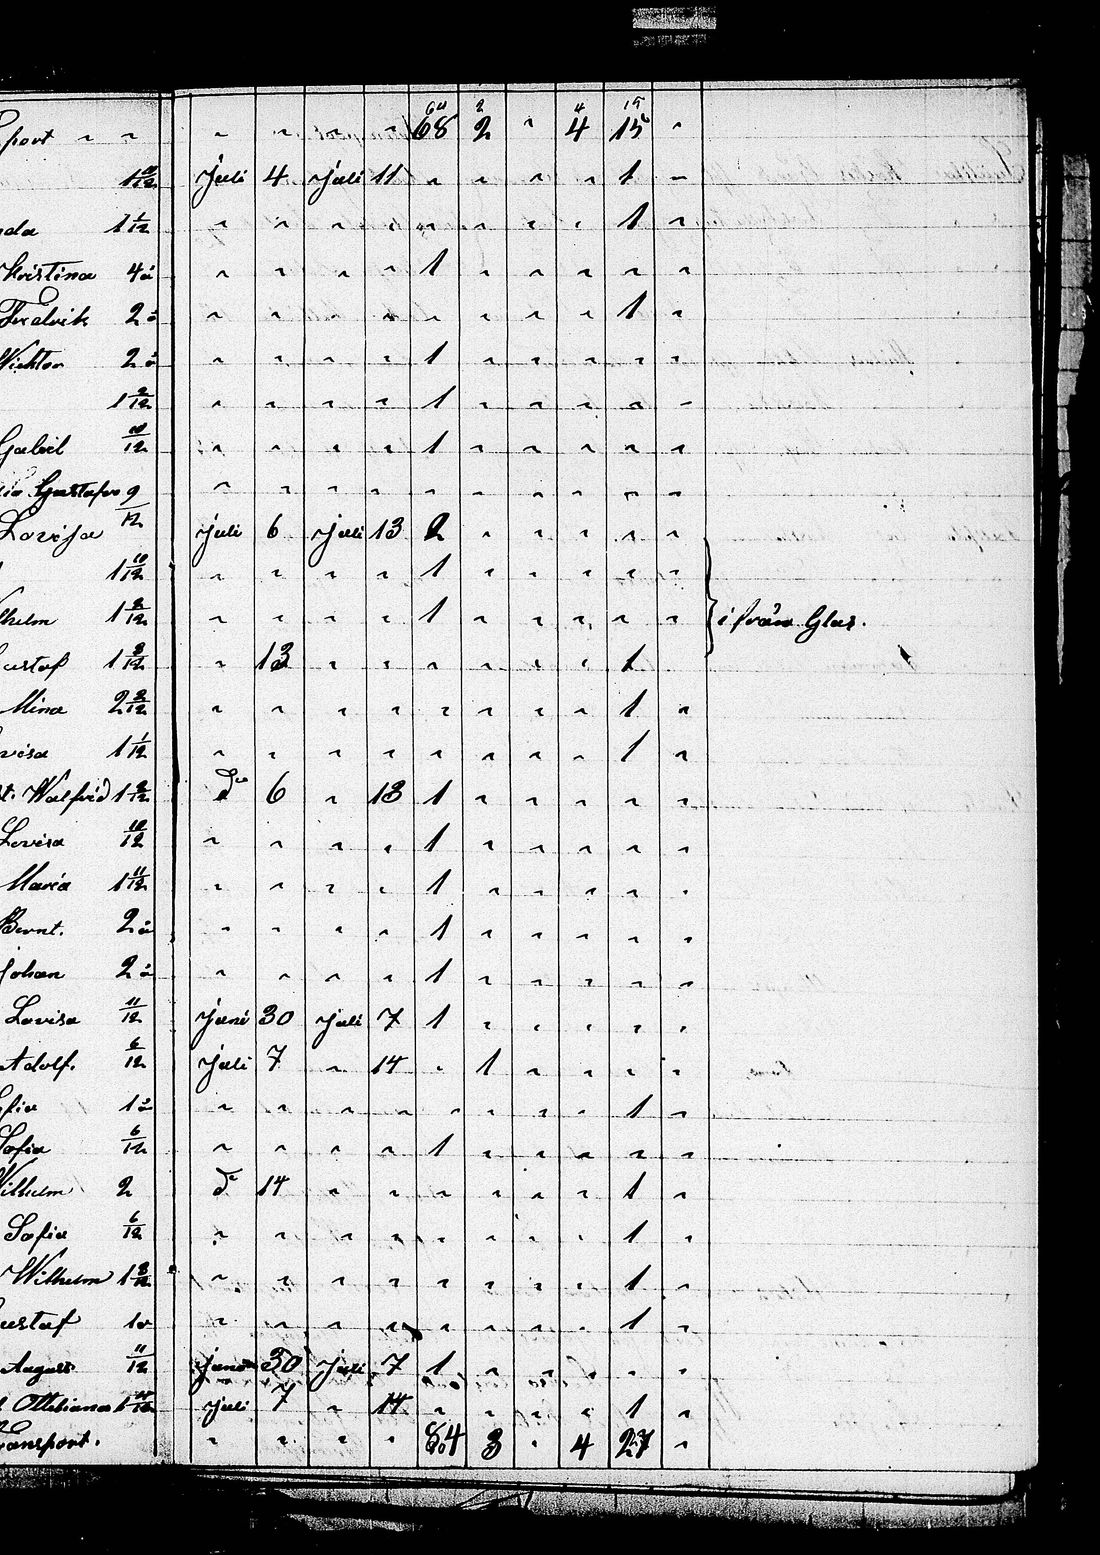 64 2 4 19
port " " " " " " 68 2 " 4 15 "
1 11/12 Juli 4 Juli 11 " " " " 1 "
nda 1 1/12 " " " " " " " " 1 "
Kristina 4 å " " " " 1 " " " " "
Fredrik 2 å " " " " " " " " 1 "
Wicktor 2 å " " " " 1 " " " " "
1 2/12 " " " " 1 " " " " "
Gabriel 10/12 " " " " 1 " " " " "
Gustafva 9/12 " " " " " " " " " "
Lovisa Juli 6 Juli 13 2 " " " " "
1 10/12 " " " " 1 " " " " "
lhelm 1 2/12 " " " " 1 " " " " " ifrån Glas.
ustaf 1 8/12 " 13 " " " " " " 1
Mina 2 8/12 " " " " " " " " 1 "
visa 1 1/12 " " " " " " " " 1 "
st. Walfrid 1 2/12 do 6 " 13 1 " " " " "
Lovisa 10/12 " " " " 1 " " " " "
Maria 1 11/12 " " " " 1 " " " " "
Bernt. 2 å " " " " 1 " " " " "
Johan 2 å " " " " 1 " " " " "
Lovisa 11/12 Juni 30 Juli 7 1 " " " " "
Adolf. 6/12 Juli 7 " 14 " 1 " " " "
fia 1 å " " " " " " " " 1 "
Sofia 6/12 " " " " 1 " " " " "
Wilhelm 2 do 14 " " " " " " 1 "
Sofia 6/12 " " " " " " " " 1 "
Wilhelm 1 8/12 " " " " " " " " 1 "
ustaf 1 å " " " " " " " " 1 "
August 11/12 Juni 30 Juli 7 1 " " " " "
Juli 7 " 14 " " " " 1 "
ansport. " " " " 84 3 " 4 27 "